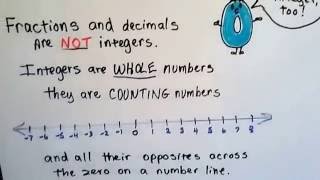 integer,
too!
Fractions and decimals
are NOT integers.
Integers are WHOLE numbers
they are COUNTING numbers
-7 -6 -5 -4 -3 -2 -1 0 1 2 3 4 5 6 7 8
and all their opposites across
the zero on a number line.